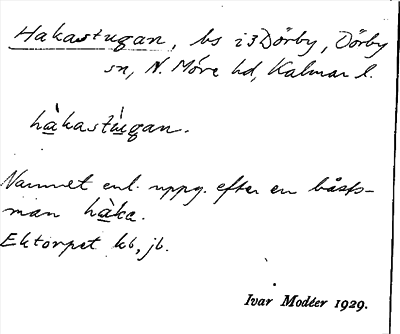 Hakastugan, bs i 3 Dörby, Dörby
sn, N. Möre hd, Kalmar l.
hàkastùgan.
Namnet enl. uppg. efter en båts-
man hàka.
Ektorpet kb, jb.
Ivar Modéer 1929.